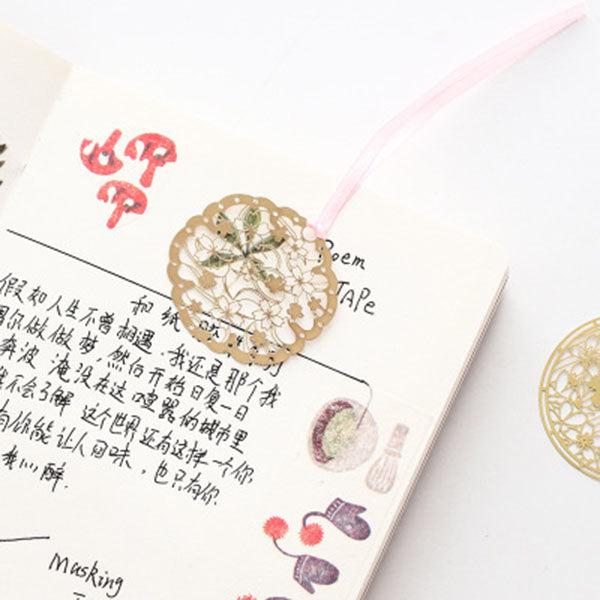 Poem
TAPe
和纸
假如人生不曾相遇.我还是那个我
偶尔做做梦.然后开始日复一日
奔波 淹没在这喧嚣的城市里
不会了解 这个世界还有这样一个你
有你能让人回味,也只有你
我心醉.
Masking